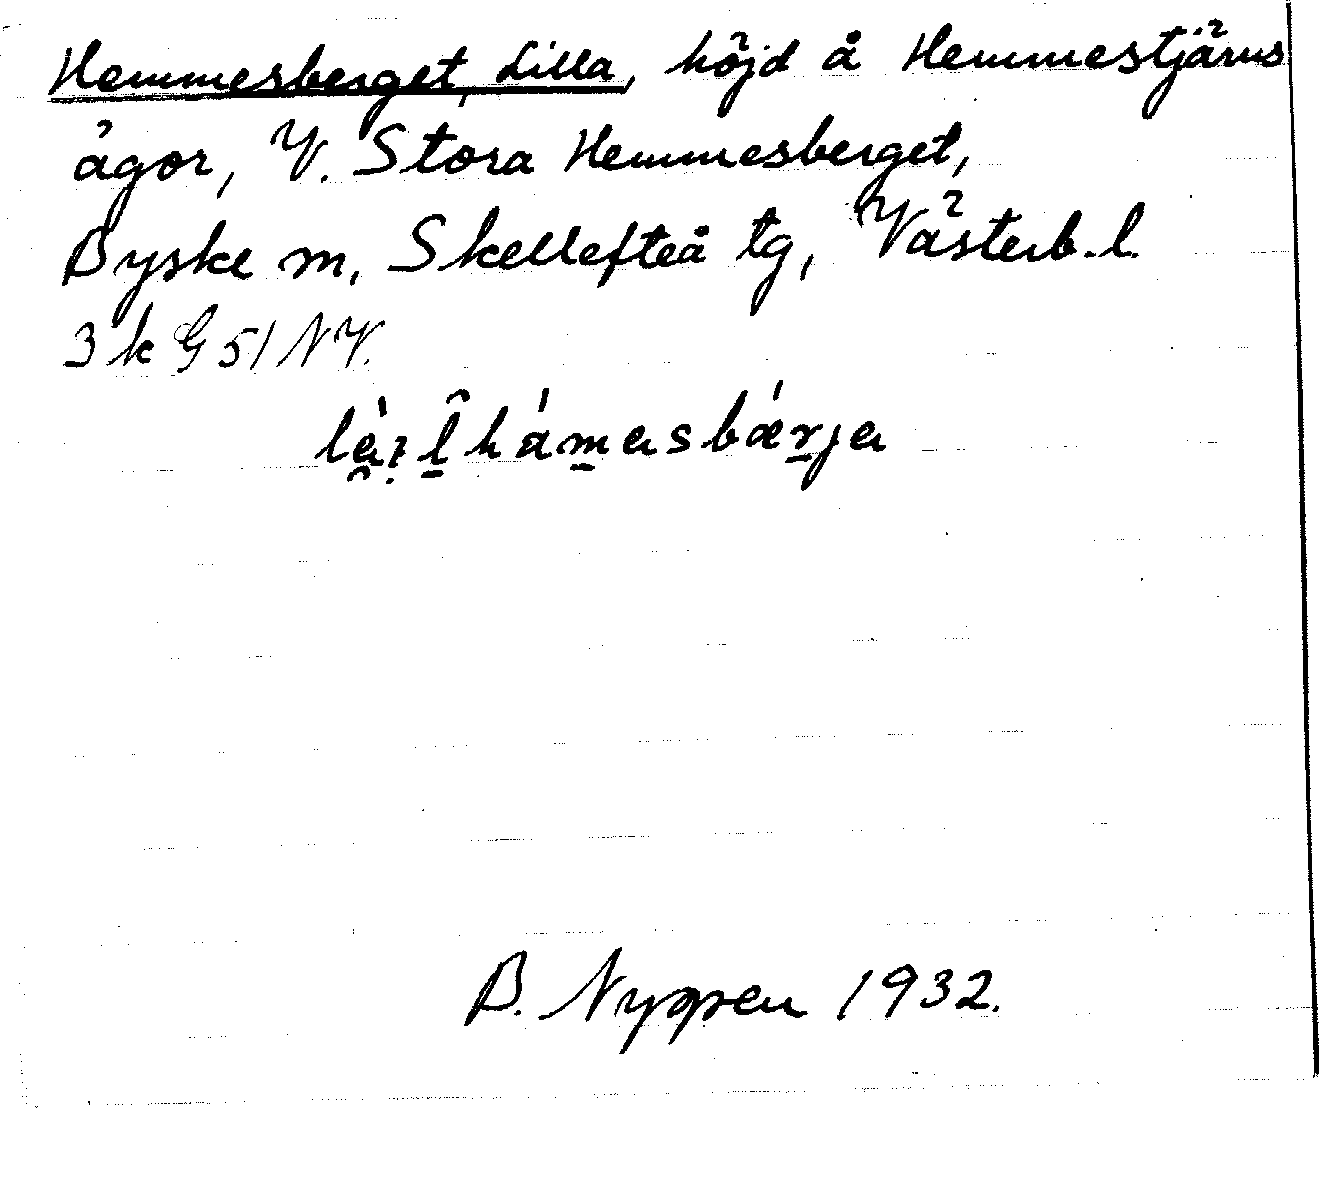 Hemmesberget, Lilla, höjd å Hemmestjärns
ägor, V. Stora Hemmesberget,
Byske m, Skellefteå tg, Västerb. l.
3 k G 51 NV.
B. Nygren 1932.